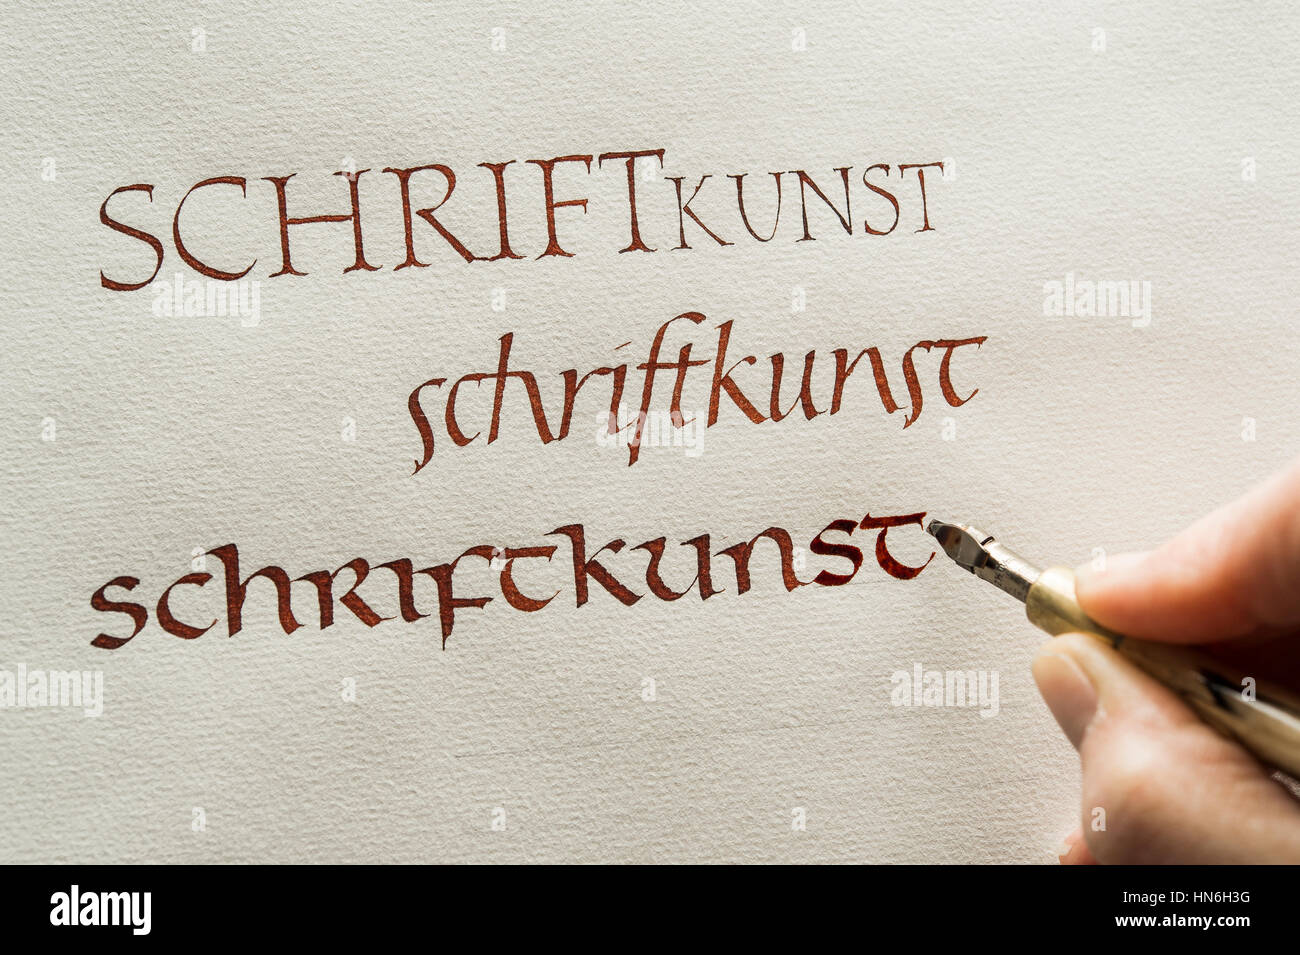 SCHRIFTKUNST
schriftkunst
schriftkunst
alamy
alamy
alamy
alamy
alamy
alamy
Image ID: HN6H3G
www.alamy.com